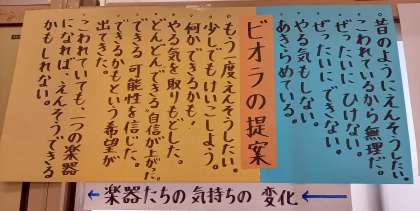 昔のようにえんそうしたい。
こわれているから無理だ。
ぜったいに ひけない。
ぜったいに できない。
やる気もしない。
あきらめている。
ビオラの提案
もう一度えんそうしたい。
少しでもけいこしよう。
何かできるかも。
やる気を取りもどした。
どんどんできる自信が上がった。
できる 可能性を信じた。
できるかもという希望が
出てきた。
こわれていても、一つの楽器
になれば、えんそうできる
かもしれない。
← 楽器たちの 気持ちの 変化 ←